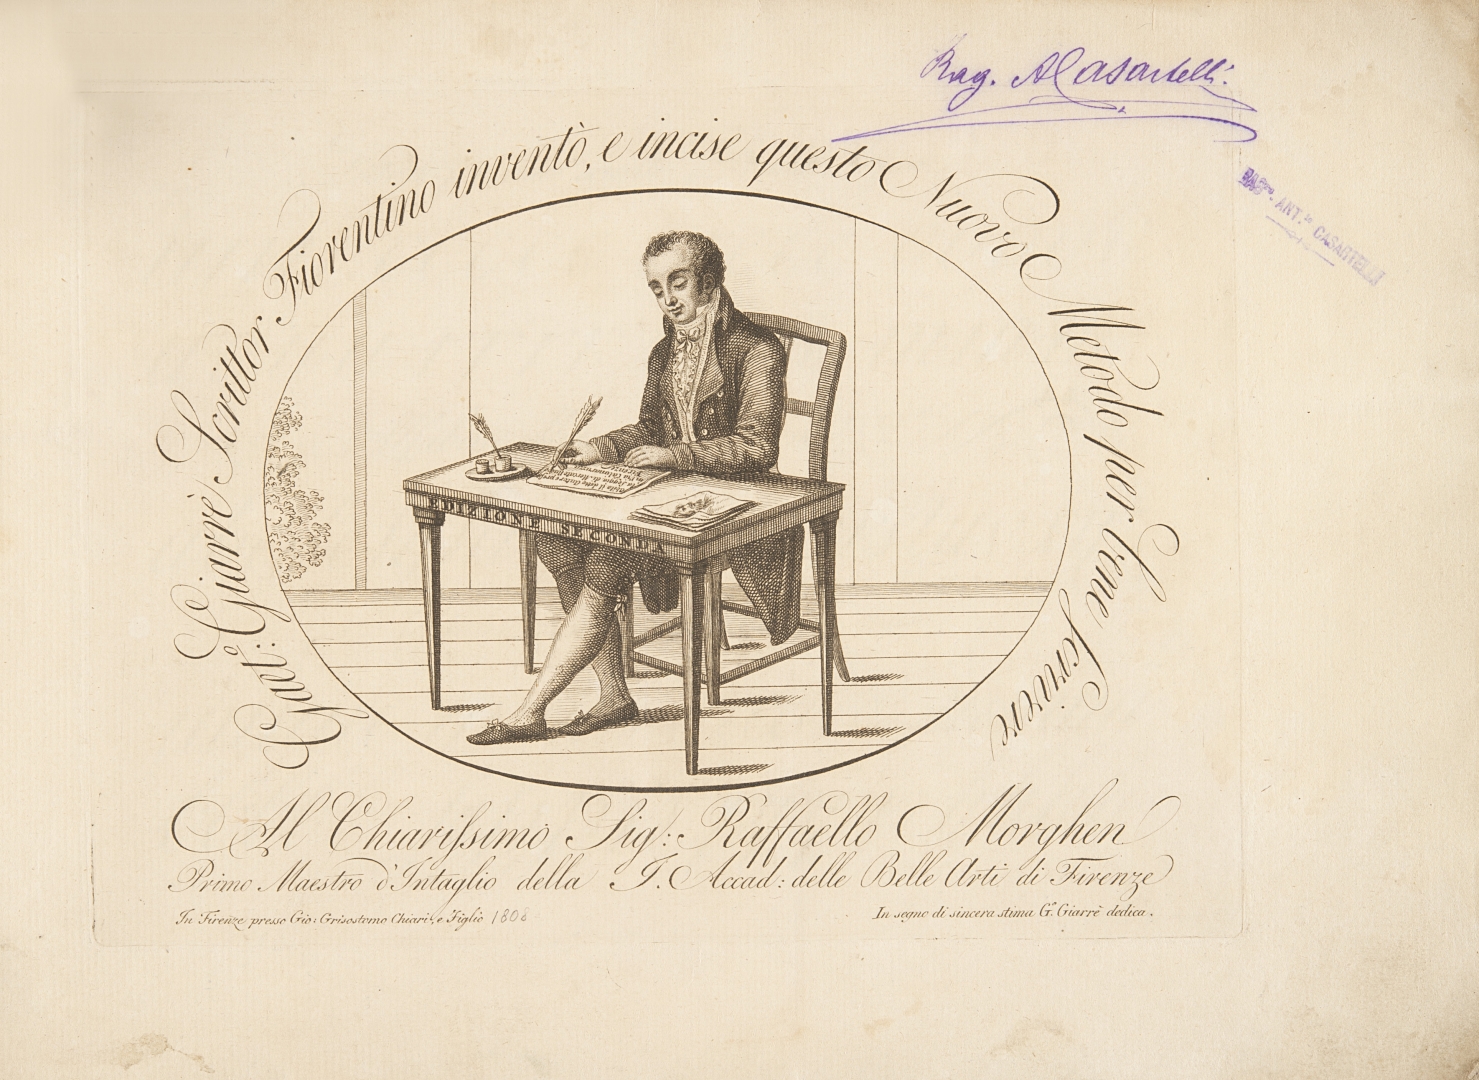 Rag. A Casartelli
RAG.re ANT.io CASARTELLI
Gaet.o Giarrè Scrittor Fiorentino inventò, e incise questo Nuovo Metodo per bene scrivere
EDIZIONE SECONDA
Al Chiarissimo Sig.: Raffaello Morghen
Primo Maestro d'Intaglio della I. Accad: delle Belle Arti di Firenze
In Firenze presso Gio: Grisostomo Chiari, e Figlio 1808
In segno di sincera stima G.o Giarrè dedica.